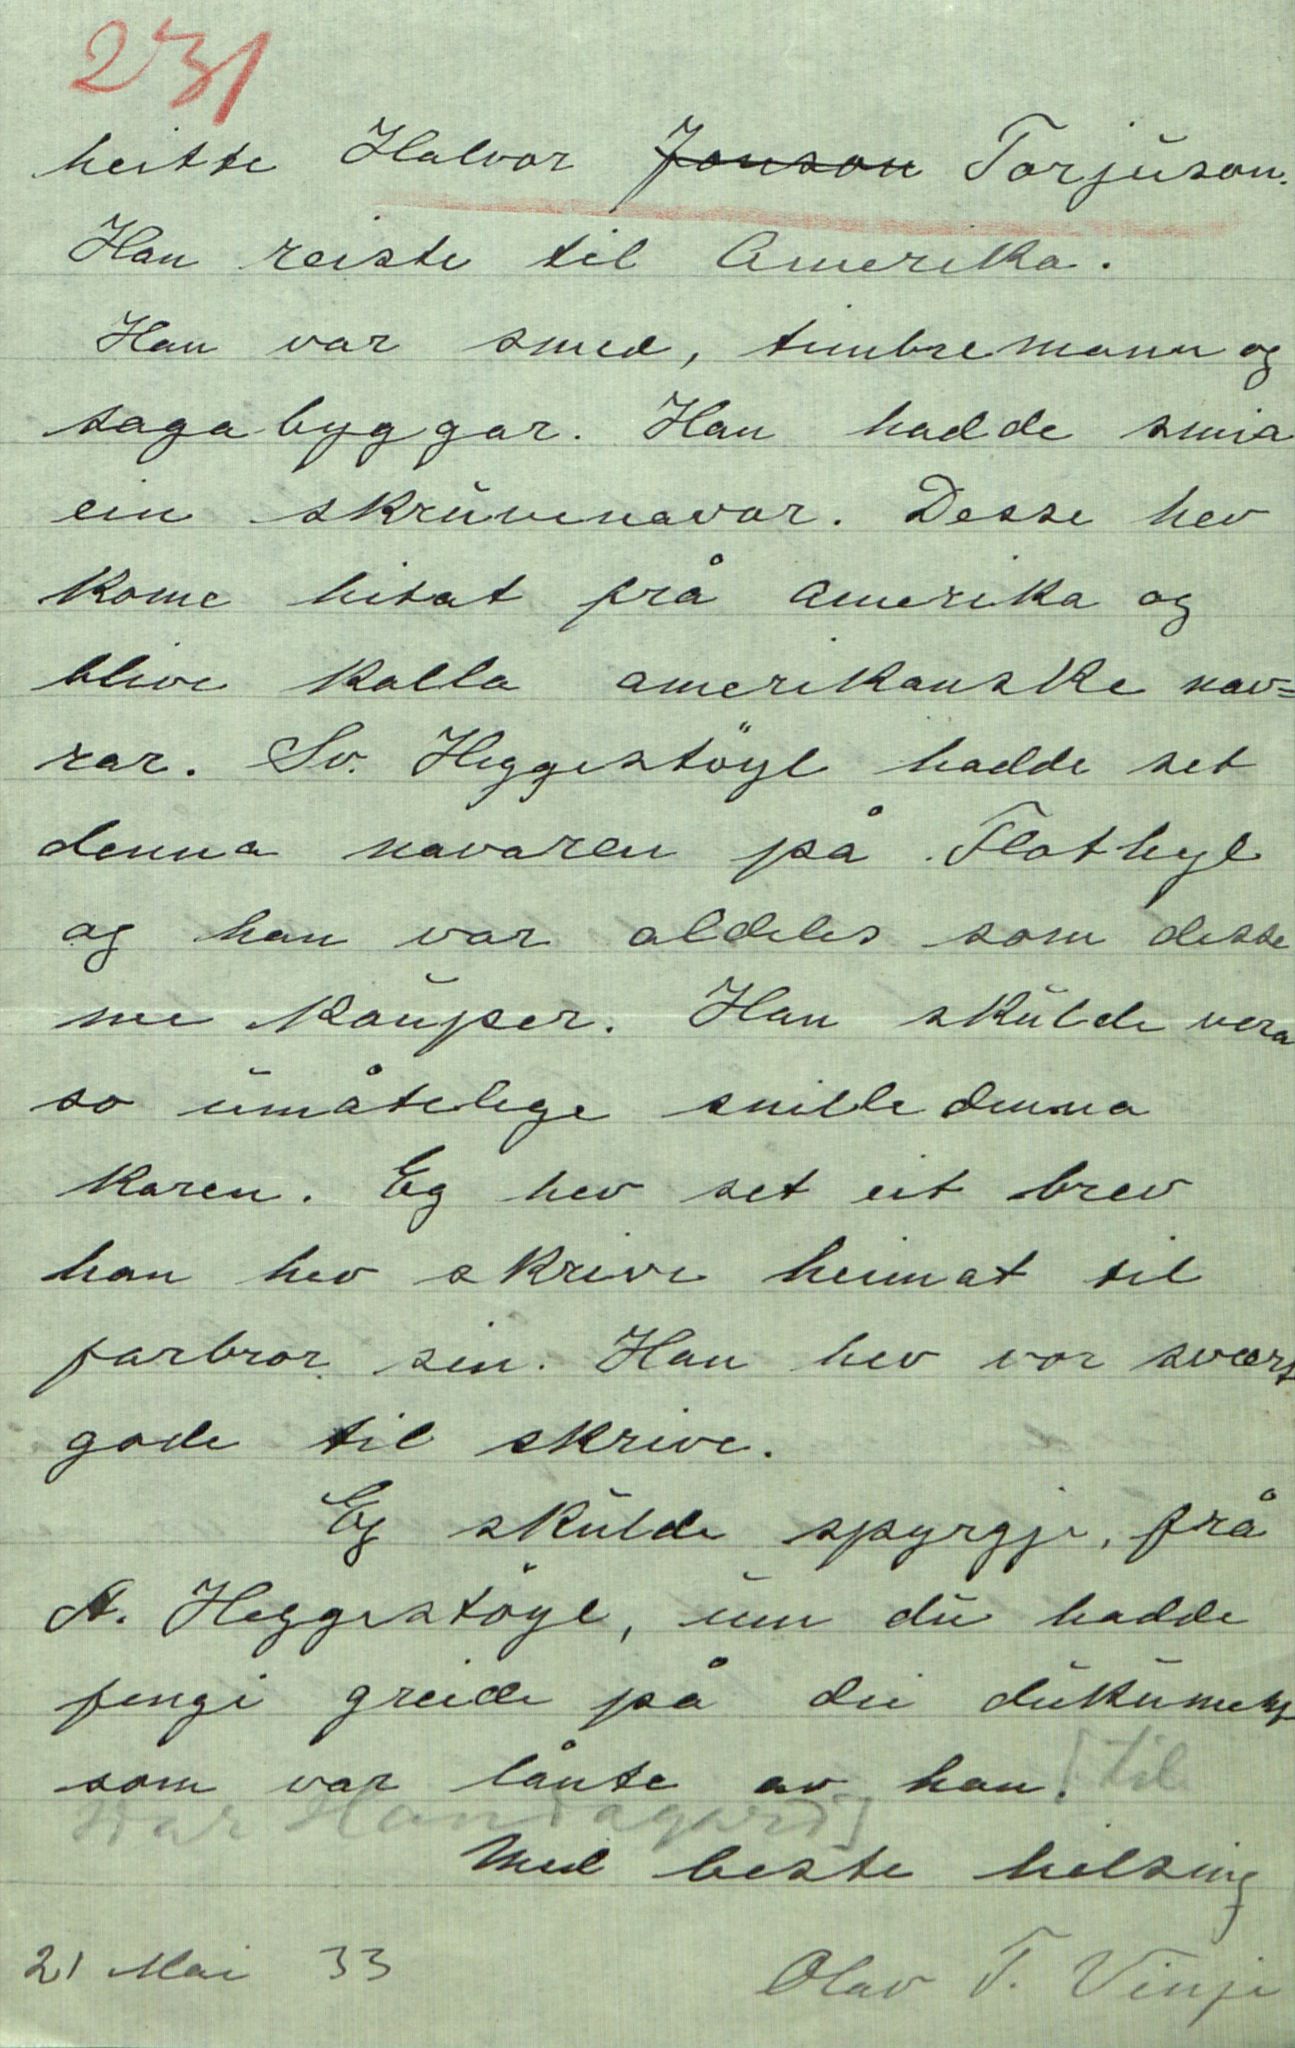 231
heitte Halvor Jonson Torjuson.
Han reiste til Amerika.
Han var smed, timbremann og
sagabyggar. Han hadde smia
ein skruvenavar. Desse hev
kome hitat frå Amerika og
blive kalla amerikanske nav=
rar. Sv. Heggestöyl hadde set
denna navaren på Flothyl
og han var aldeles som desse
me kauper. Han skulde vera
so umåtelege snille denna
karen. Eg hev set eit brev
han hev skrive heimat til
farbror sin. Han hev vor svært
gode til skrive.
Eg skulde spyrgje, frå
A. Heggestöyl, um du hadde
fengi greide på dei dukument
som var lånte av han. [til
Ivar Handagard]
Med beste helsing
21 Mai 33 Olav T. Vinje